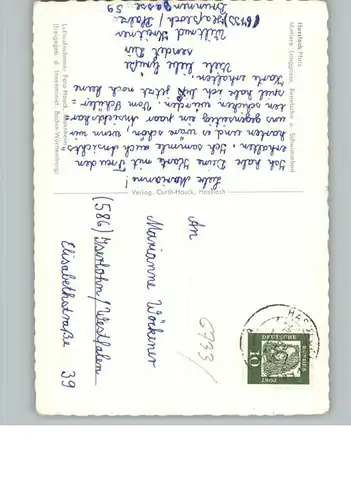 Hassloch Pfalz
Mittlere Langgasse, Rennbahn u. Schwimmbad
Luftaufnahmen: Foto-Hauck, Mannheim
(freigegeb. d. Innenminist. Baden-Württemberg)
Verlag: Curth-Hauck, Hassloch
Liebe Marianne!
Ich habe Deine Karte mit Freuden
erhalten. Ich sammle auch Ansichts
karten und es wäre schön, wenn wir
uns gegenseitig ein paar Ansichtskart
en schicken würden. Vom "Söhler-
spiel habe ich bis jetzt noch keine
Karte erhalten.
Viele liebe Grüße
sendet Dir
Waltraud
6733 Haßloch / Pfalz
Brunnengasse 59
An
Marianne Wöckener
(586) Iserlohn/Westfalen
Elisabethstraße 39
6733/
DEUTSCHE BUNDESPOST
10